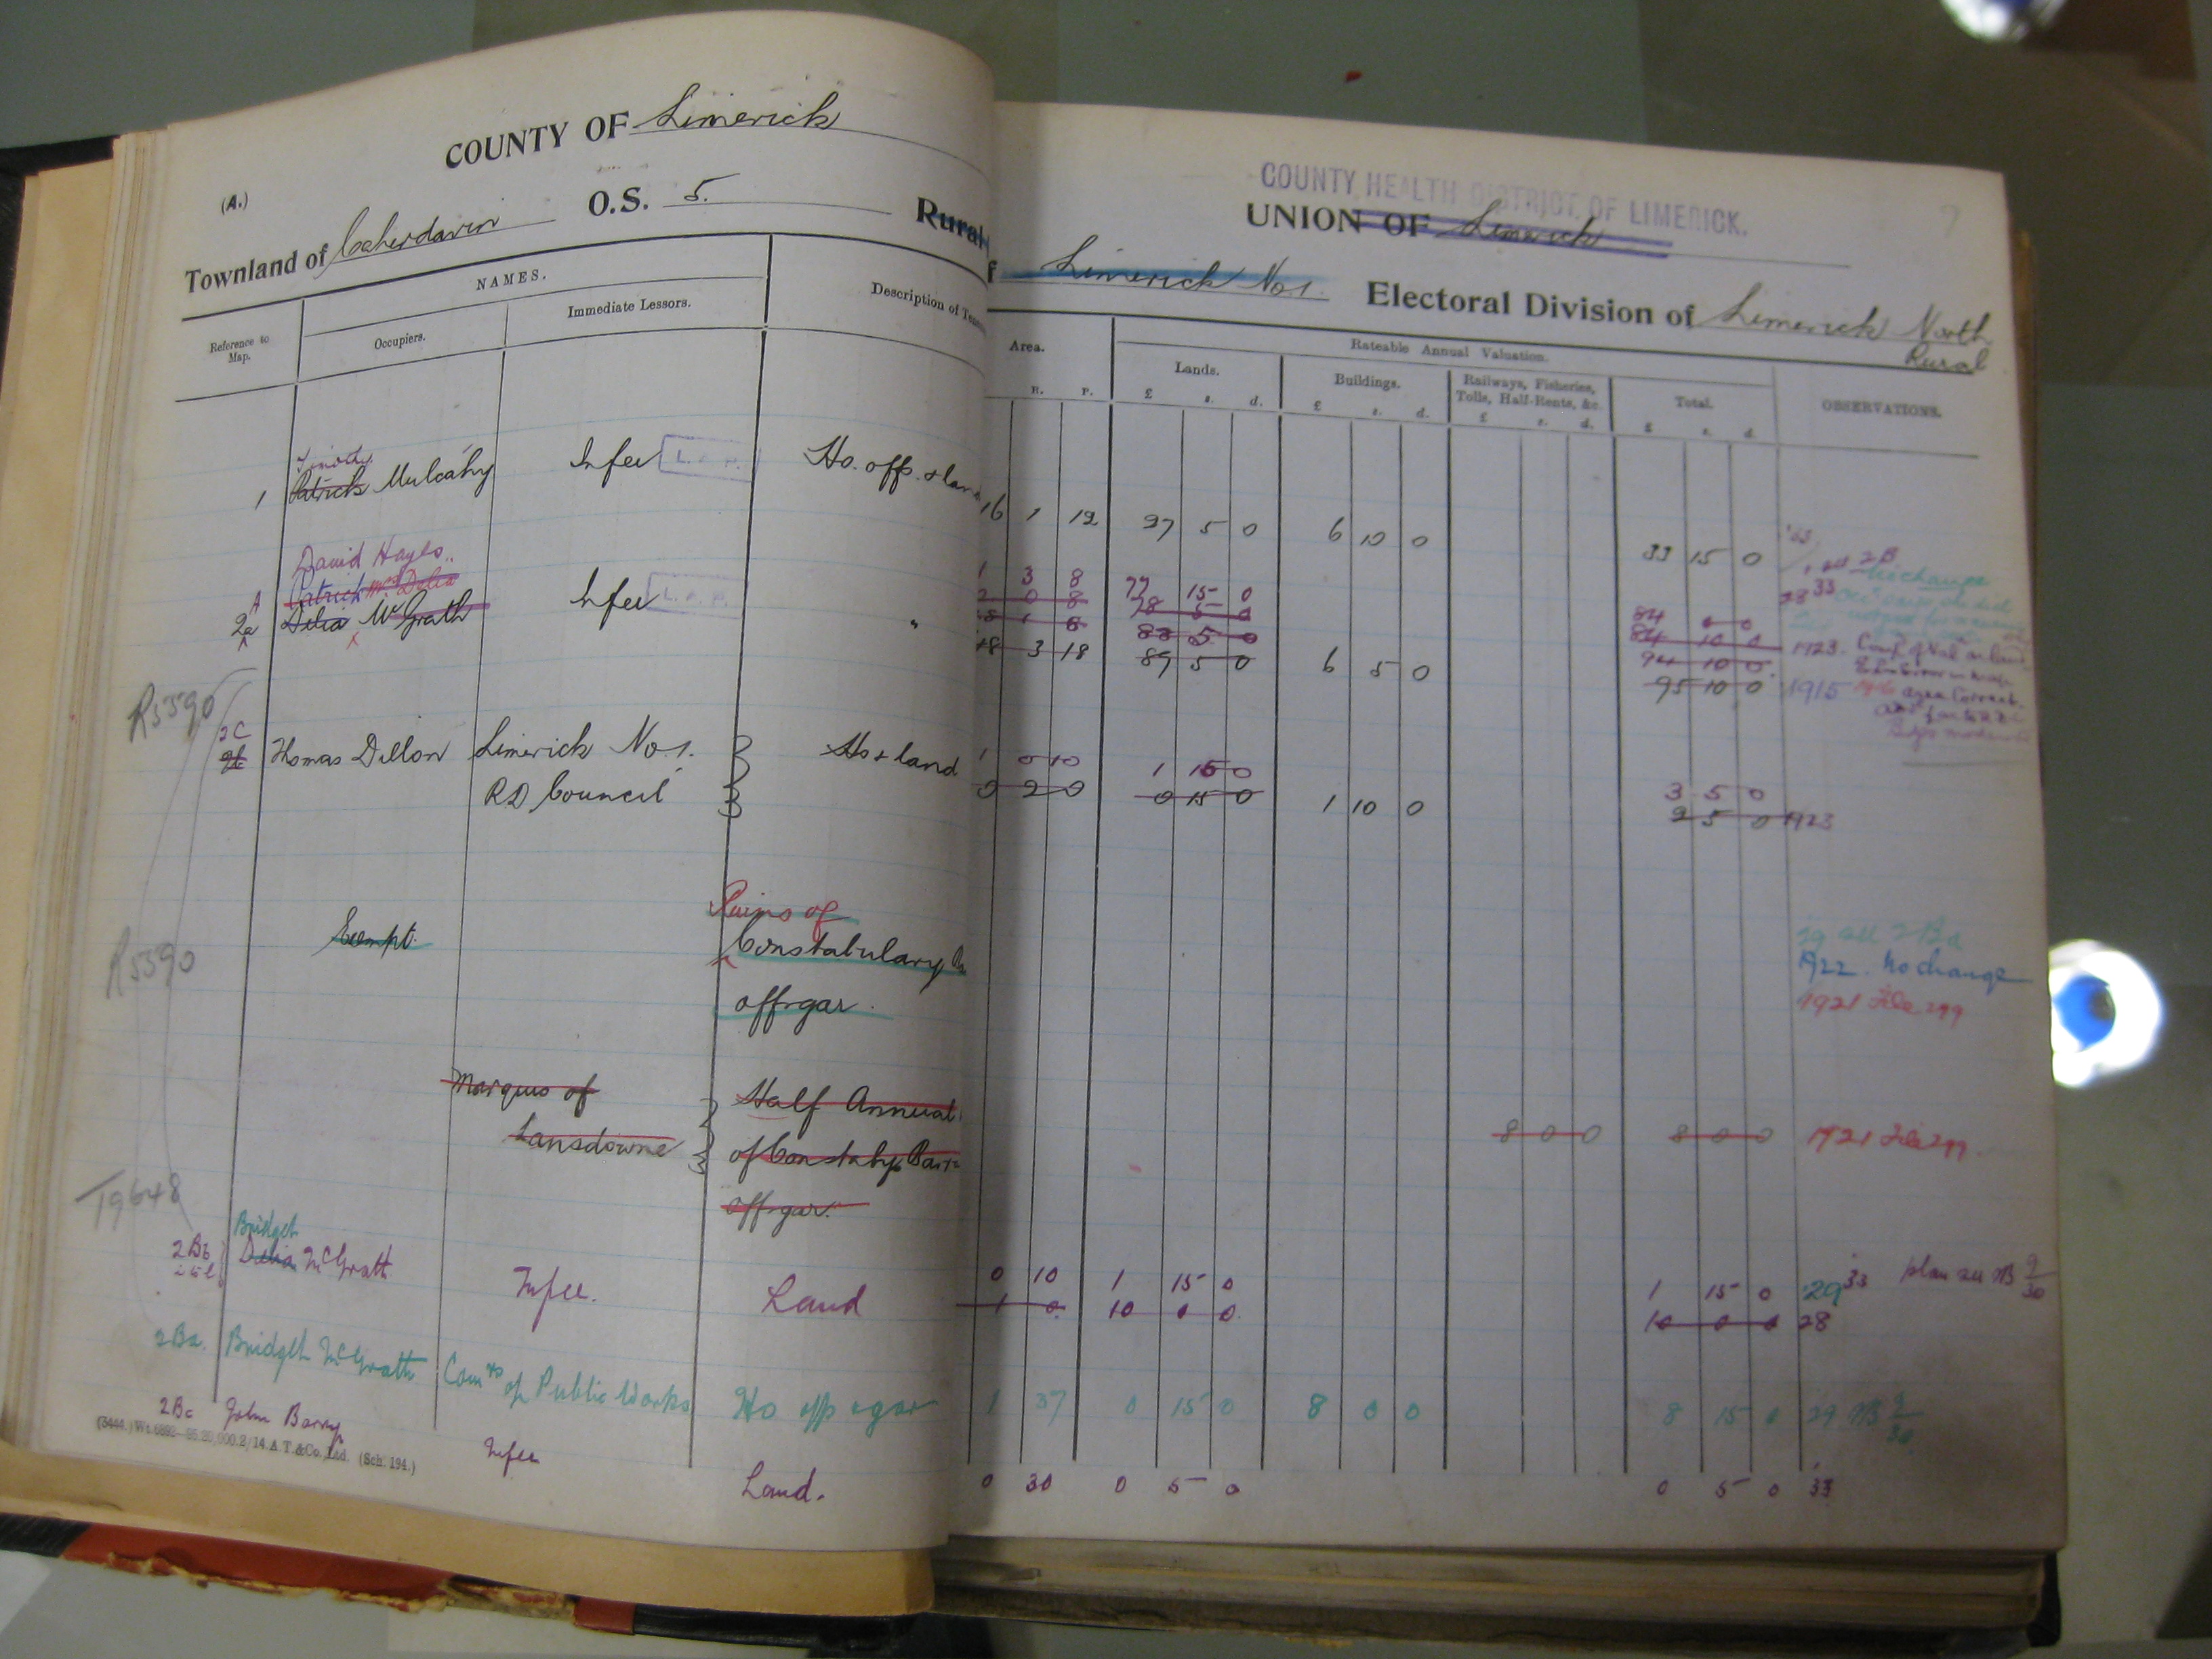 COUNTY OF Limerick
(A.)
Townland of Caherdavin O.S. 5.
Rural
COUNTY HEALTH DISTRICT OF LIMERICK.
UNION OF Limerick
Limerick No 1. Electoral Division of Limerick North
Rural
Reference to Map.
NAMES.
Occupiers.
Immediate Lessors.
Description of
Area.
R. P.
Rateable Annual Valuation.
Lands.
£ s. d.
Buildings.
£ s. d.
Railways, Fisheries,
Tolls, Half-Rents, &c.
£ s. d.
Total.
£ s. d.
OBSERVATIONS.
Timothy
1 Patrick Mulcahy In fee L. A. P. Ho. offs. & lan
16 1 12 27 5 0 6 10 0 33 15 0
David Hayes
Patrick Mrs Delia
2a Delia McGrath In fee L. A. P. "
1 3 8 77 15 0 84 0 0
2 0 8 78 5 0 84 10 0 1923.
88 5 0 94 10 0
48 3 18 89 5 0 6 5 0 95 10 0 1915
R5590
2C
2b Thomas Dillon Limerick No 1. Ho & land
RD Council
1 0 10 1 15 0 3 5 0
0 2 0 0 15 0 1 10 0 2 5 0 1923
Exempt.
Ruins of
Constabulary
off & gar.
29 see 2Ba
1922. No change
1921 File 299
R5590
Marquis of
Lansdowne
Half Annual
of Constaby. Barr
off & gar.
8 0 0 8 0 0 1921 File 299.
T9648
Bridget
2Bb Delia McGrath In fee. Land
0 10 1 15 0 1 15 0 29 33 plan see NB 9/30
1 0 10 0 0 10 0 0 28
2Ba. Bridget McGrath Comrs of Public Works Ho off & gar
1 37 0 15 0 8 0 0 8 15 0 29 NB 9/30
2Bc John Barry In fee Land.
0 30 0 5 0 0 5 0 33
(3444.) Wt. 6892—95. 20,000. 2/14. A.T.&Co., Ltd. (Sch. 194.)